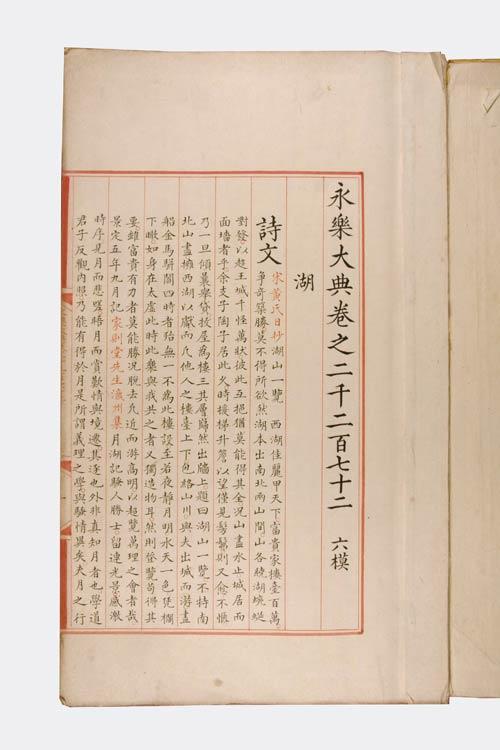 永樂大典卷之二千二百七十二 六模
湖
詩文 宋黃氏日抄湖山一覽 西湖佳麗甲天下富貴家樓臺百萬
爭奇築勝莫不得所欲然湖本出南北兩山間山各繞湖蜿蜒
對發以趍王城千怪萬狀彼此互挹猶莫能得其全况山盡水止城居而
面墻者乎余友子陶子居此久時援梯升簷以望僅見髣髴則又悒不愜
乃一旦傾囊舉貸拔屋為樓三其層巋然出牆上題曰湖山一覽不特南
北山盡擁西湖以獻而凡他人之樓臺上下包絡山川與夫出城而游畫
船金馬駢闐四時者殆無一不為此樓設至若夜靜月明水天一色凭欄
下瞰如身在太虛此時此樂與我共之者又獨造物耳然則登覽苟得其
要雖富貴有力者莫能勝况脫去凡近而游高明以超覽萬理之會者哉
景定五年九月記家則堂先生瀛州集月湖記騷人勝士留連光景感激
時序見月而悲晤月而賞歡情與境遷其逐也外非真知月者也學道
君子反觀內照乃能有得於月是所謂義理之學與騷情異矣夫月之行